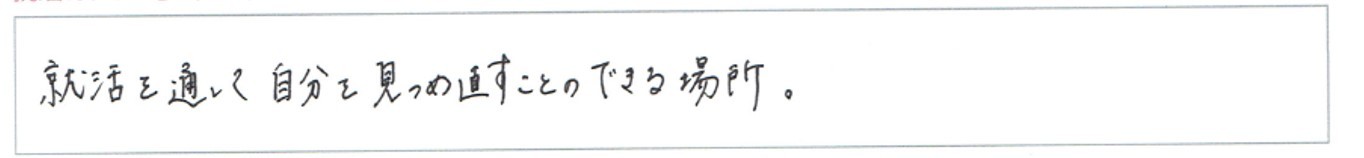 就活を通して自分を見つめ直すことのできる場所。